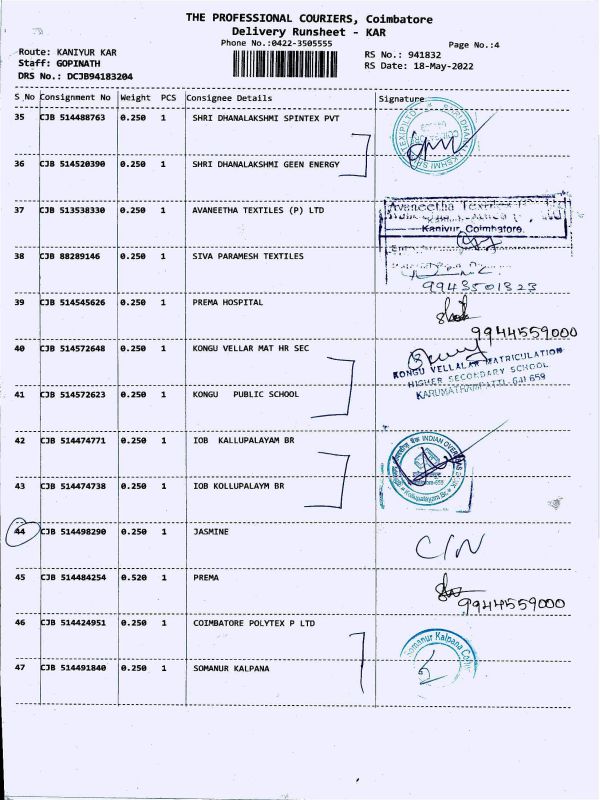 THE PROFESSIONAL COURIERS, Coimbatore
Delivery Runsheet - KAR
Phone No.:0422-3505555
Page No.:4
Route: KANIYUR KAR
Staff: GOPINATH
DRS No.: DCJB94183204
RS No.: 941832
RS Date: 18-May-2022
S No Consignment No Weight PCS Consignee Details Signature
35 CJB 514488763 0.250 1 SHRI DHANALAKSHMI SPINTEX PVT
36 CJB 514520390 0.250 1 SHRI DHANALAKSHMI GEEN ENERGY
37 CJB 513538330 0.250 1 AVANEETHA TEXTILES (P) LTD
Avaneetha Textiles
Kaniyur, Coimbatore.
38 CJB 88289146 0.250 1 SIVA PARAMESH TEXTILES
9943501323
39 CJB 514545626 0.250 1 PREMA HOSPITAL
9944559000
40 CJB 514572648 0.250 1 KONGU VELLAR MAT HR SEC
KONGU VELLALAR MATRICULATION
HIGHER SECONDARY SCHOOL
KARUMATHAMPATTI-641 659
41 CJB 514572623 0.250 1 KONGU PUBLIC SCHOOL
42 CJB 514474771 0.250 1 IOB KALLUPALAYAM BR
INDIAN OVERSEAS
43 CJB 514474738 0.250 1 IOB KOLLUPALAYM BR
Kollupalayam Br.
44 CJB 514498290 0.250 1 JASMINE
C/N
45 CJB 514484254 0.520 1 PREMA
9944559000
46 CJB 514424951 0.250 1 COIMBATORE POLYTEX P LTD
Somanur Kalpana
47 CJB 514491840 0.250 1 SOMANUR KALPANA